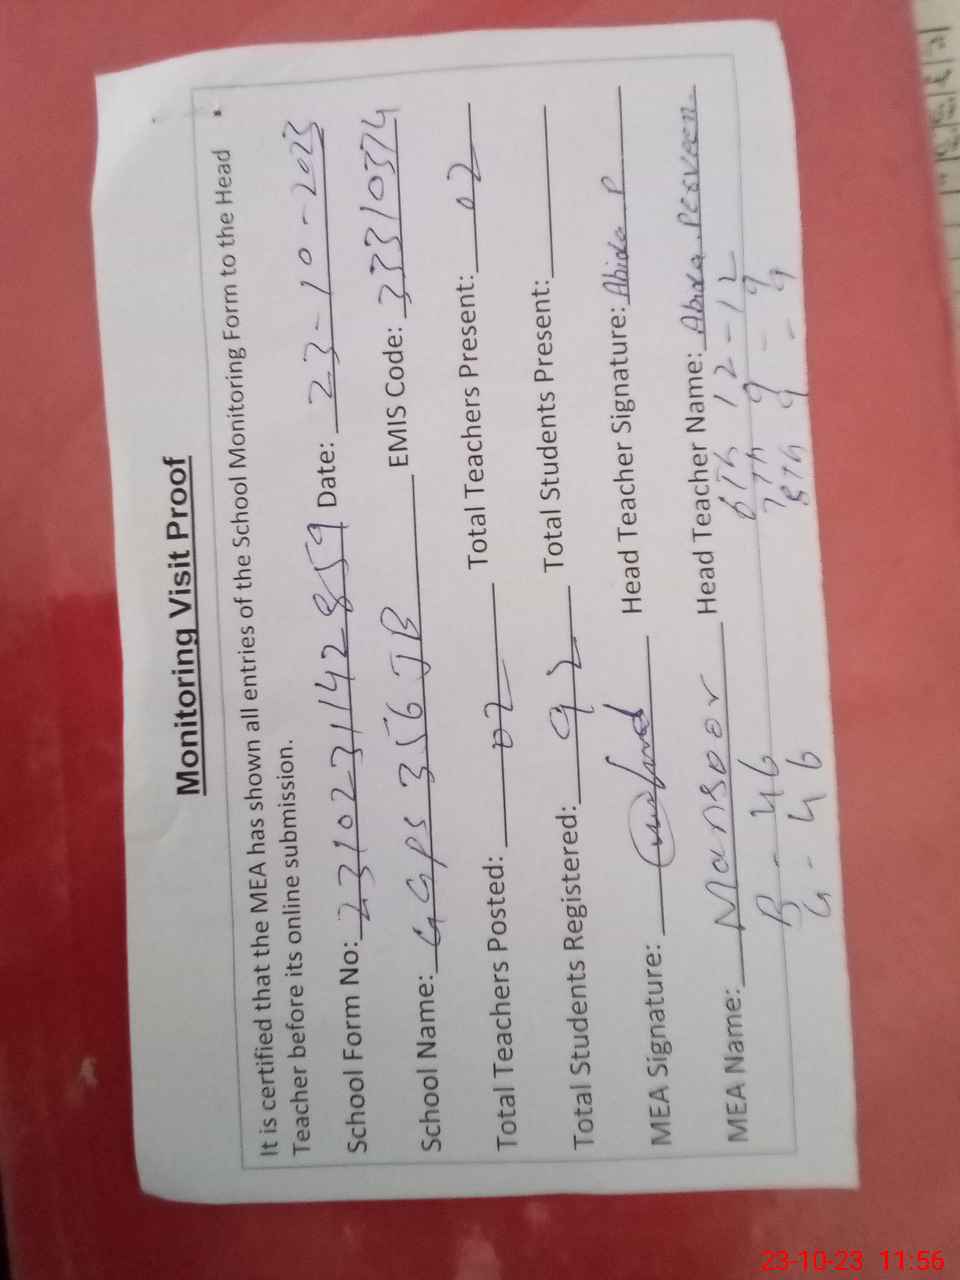 Monitoring Visit Proof
It is certified that the MEA has shown all entries of the School Monitoring Form to the Head
Teacher before its online submission.
School Form No: 231023142859 Date: 23-10-2023
School Name: GGPS 356 JB EMIS Code: 33310374
Total Teachers Posted: 02 Total Teachers Present: 02
Total Students Registered: 92 Total Students Present:
MEA Signature: Head Teacher Signature: Abida P
MEA Name: Mansoor Head Teacher Name: Abida Perveen
B - 46 6th 12-12
G - 46 7th 9 - 9
8th 9 - 9
23-10-23 11:56